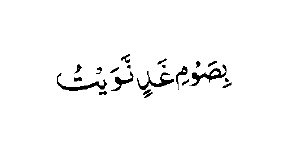 بِصَوْمِ غَدٍ نَّوَيْتُ